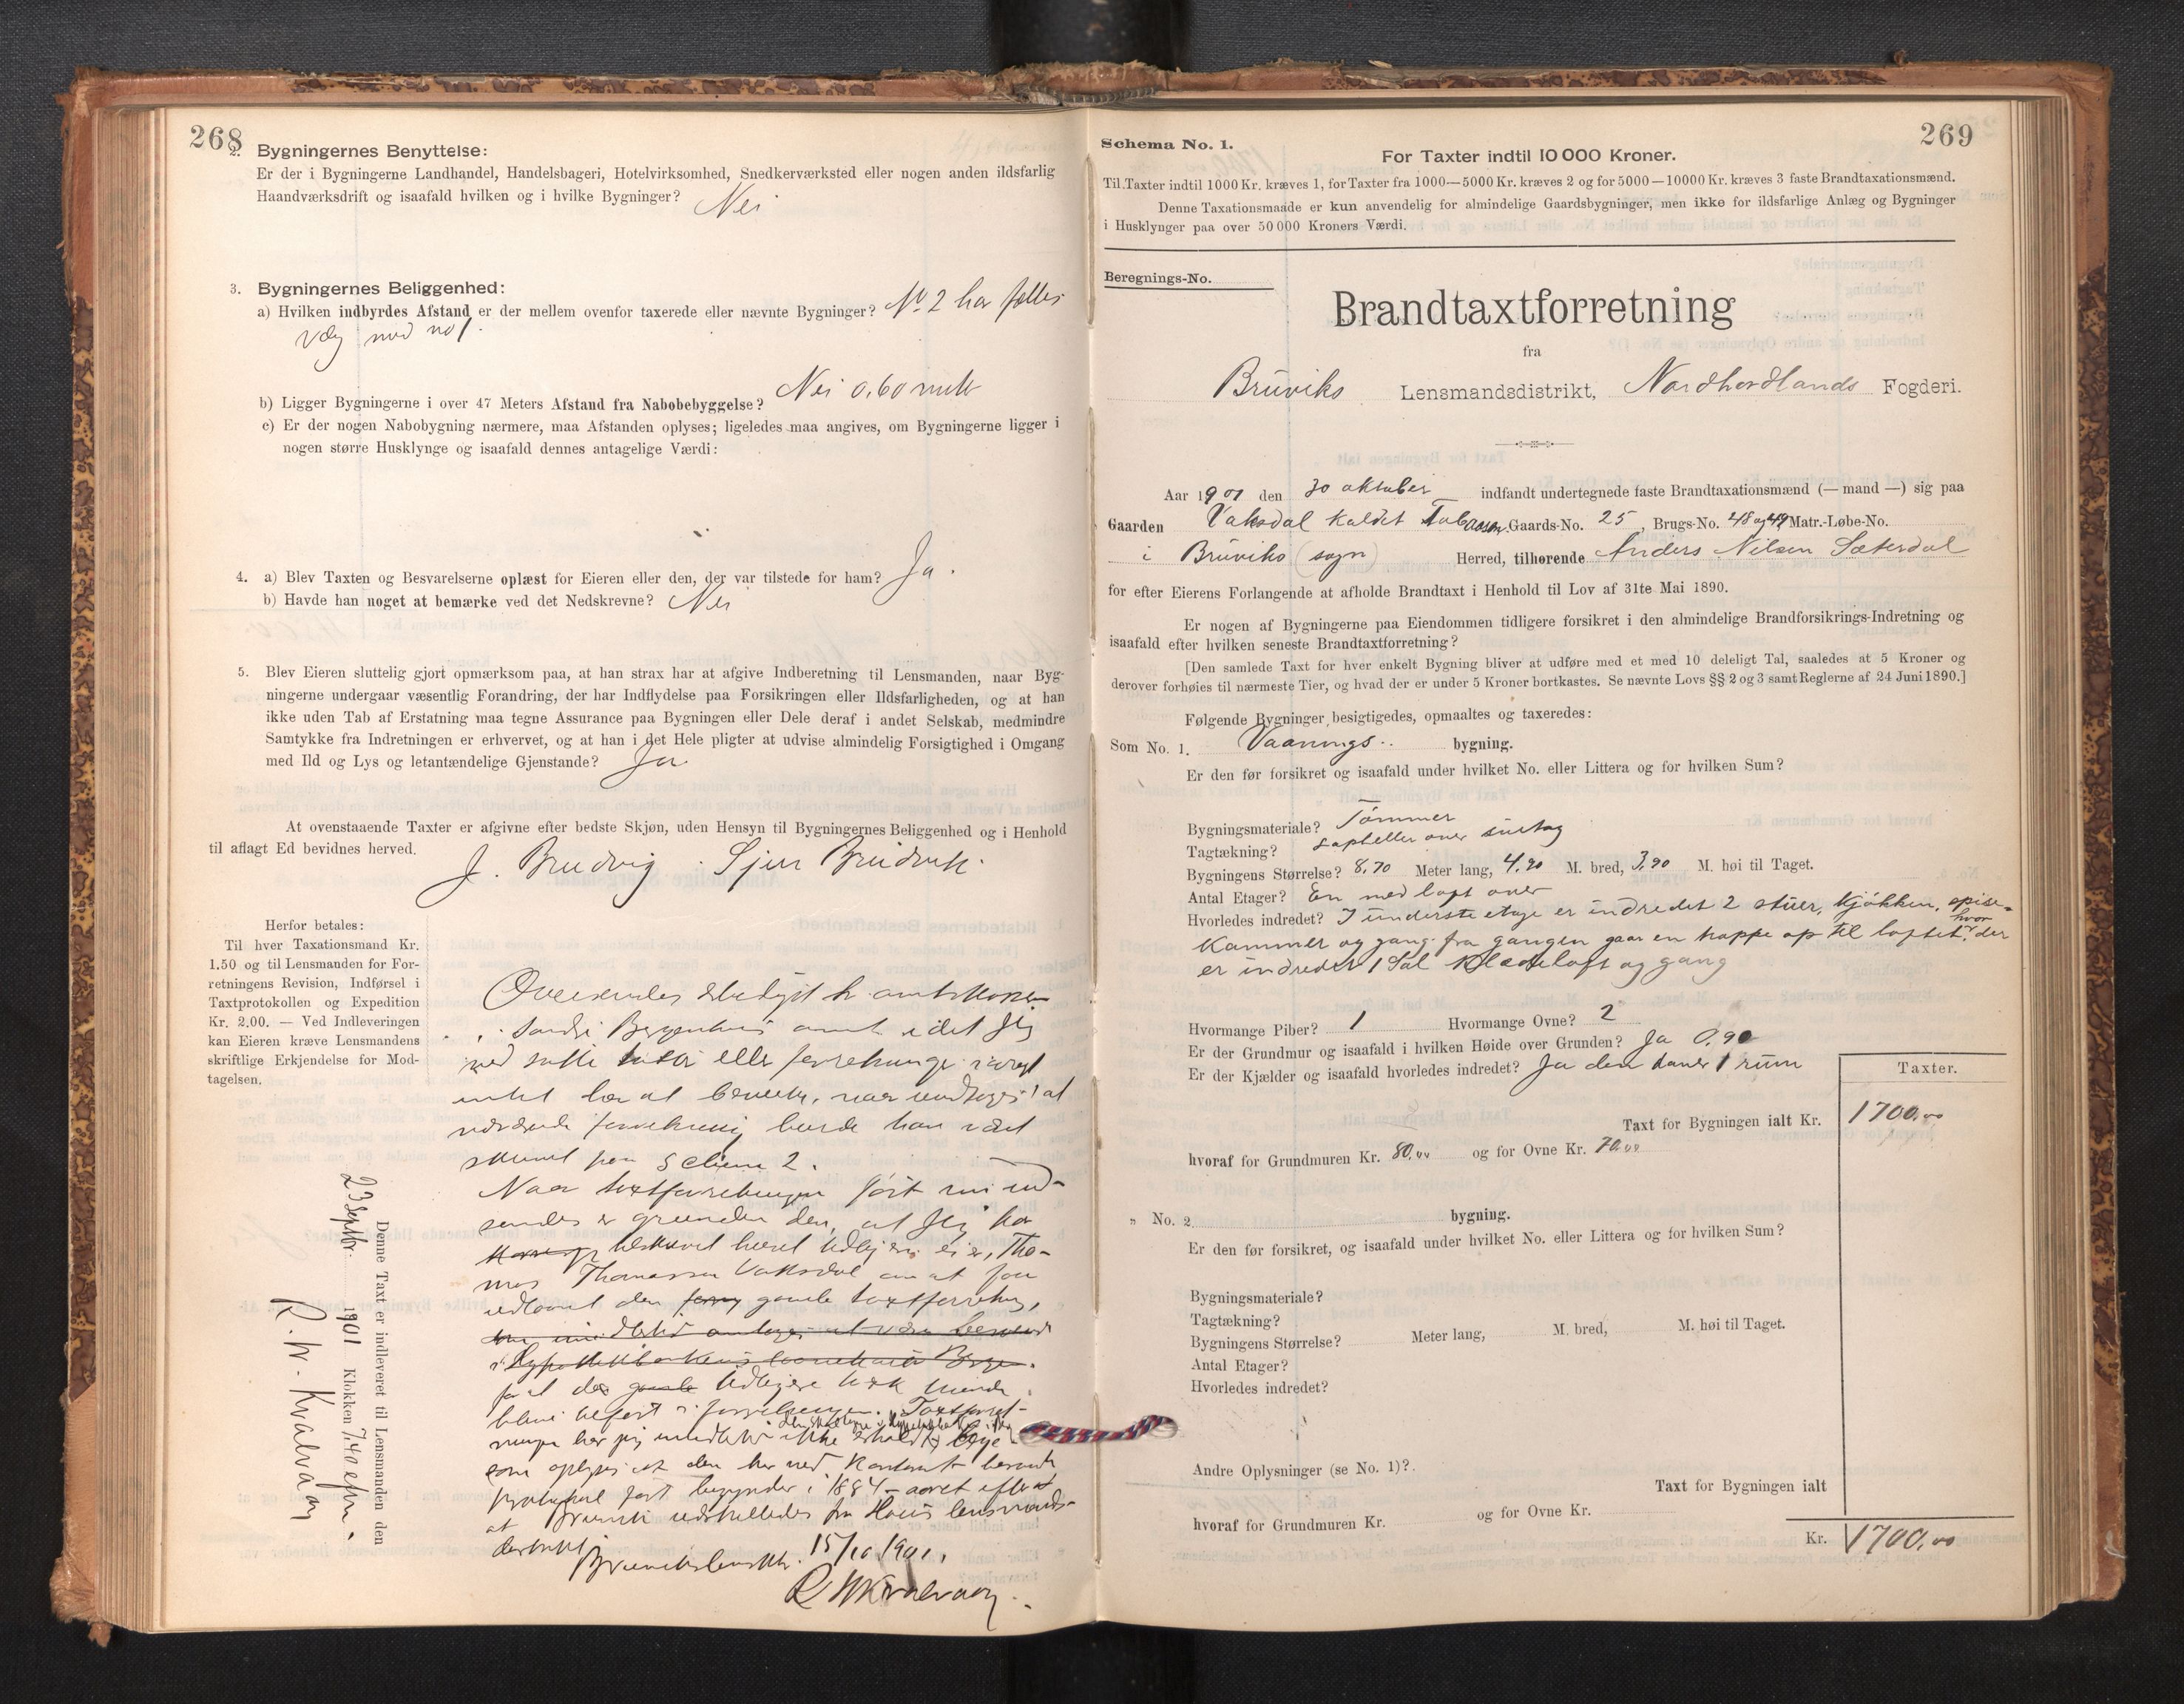 268
2. Bygningernes Benyttelse:
Er der i Bygningerne Landhandel, Handelsbageri, Hotelvirksomhed, Snedkerværksted eller nogen anden ildsfarlig
Haandværksdrift og isaafald hvilken og i hvilke Bygninger? Nei
3. Bygningernes Beliggenhed:
a) Hvilken indbyrdes Afstand er der mellem ovenfor taxerede eller nævnte Bygninger? No 2 har fælles
væg med no 1.
b) Ligger Bygningerne i over 47 Meters Afstand fra Nabobebyggelse? Nei 0,60
c) Er der nogen Nabobygning nærmere, maa Afstanden oplyses; ligeledes maa angives, om Bygningerne ligger i
nogen større Husklynge og isaafald dennes antagelige Værdi:
4. a) Blev Taxten og Besvarelserne oplæst for Eieren eller den, der var tilstede for ham? Ja.
b) Havde han noget at bemærke ved det Nedskrevne? Nei
5. Blev Eieren sluttelig gjort opmærksom paa, at han strax har at afgive Indberetning til Lensmanden, naar Byg-
ningerne undergaar væsentlig Forandring, der har Indflydelse paa Forsikringen eller Ildsfarligheden, og at han
ikke uden Tab af Erstatning maa tegne Assurance paa Bygningen eller Dele deraf i andet Selskab, medmindre
Samtykke fra Indretningen er erhvervet, og at han i det Hele pligter at udvise almindelig Forsigtighed i Omgang
med Ild og Lys og letantændelige Gjenstande? Ja
At ovenstaaende Taxter er afgivne efter bedste Skjøn, uden Hensyn til Bygningernes Beliggenhed og i Henhold
til aflagt Ed bevidnes herved.
J. Brudvig . Sjur Brudvik.
Herfor betales:
Til hver Taxationsmand Kr.
1.50 og til Lensmanden for For-
retningens Revision, Indførsel i
Taxtprotokollen og Expedition
Kr. 2.00. — Ved Indleveringen
kan Eieren kræve Lensmandens
skriftlige Erkjendelse for Mod-
tagelsen.
Denne Taxt er indleveret til Lensmanden den
23 Septbr. 1901 Klokken 7,40 efm.
R. W. Kvalvaag
Søndre Bergenhus amt idet Jeg
ved eller
intet har at bemerke, naar undtages at
burde han vært
skrevet paa Schema 2.
Naar først nu ind-
sendes er grunden den, at Jeg har
Tho-
mas Thomassen Vaksdal om at faa
den gamle taxtforretng,
protokol først begynder i 1884 – aaret efterat
Bruvik udskilledes fra Hous lensmands-
distrikt
15/10 1901.
R W Kvalvaag.
269
Schema No. 1.
For Taxter indtil 10 000 Kroner.
Til Taxter indtil 1000 Kr. kræves 1, for Taxter fra 1000—5000 Kr. kræves 2 og for 5000—10000 Kr. kræves 3 faste Brandtaxationsmænd.
Denne Taxationsmaade er kun anvendelig for almindelige Gaardsbygninger, men ikke for ildsfarlige Anlæg og Bygninger
i Husklynger paa over 50 000 Kroners Værdi.
Beregnings-No.
Brandtaxtforretning
fra
Bruviks Lensmandsdistrikt, Nordhordlands Fogderi.
Aar 1901 den 30 oktober indfandt undertegnede faste Brandtaxationsmænd (— mand —) sig paa
Gaarden Vaksdal kaldet Gaards-No. 25, Brugs-No. 48 og 49 Matr.-Løbe-No.
i Bruviks (sogn) Herred, tilhørende Anders Nilsen Sæterdal
for efter Eierens Forlangende at afholde Brandtaxt i Henhold til Lov af 31te Mai 1890.
Er nogen af Bygningerne paa Eiendommen tidligere forsikret i den almindelige Brandforsikrings-Indretning og
isaafald efter hvilken seneste Brandtaxtforretning?
[Den samlede Taxt for hver enkelt Bygning bliver at udføre med et med 10 deleligt Tal, saaledes at 5 Kroner og
derover forhøies til nærmeste Tier, og hvad der er under 5 Kroner bortkastes. Se nævnte Lovs §§ 2 og 3 samt Reglerne af 24 Juni 1890.]
Følgende Bygninger besigtigedes, opmaaltes og taxeredes:
Som No. 1. Vaanings.. bygning.
Er den før forsikret og isaafald under hvilket No. eller Littera og for hvilken Sum?
Bygningsmateriale? Tømmer
Tagtækning? over
Bygningens Størrelse? 8,70 Meter lang, 4,90 M. bred, 3,90 M. høi til Taget.
Antal Etager? En med loft over
Hvorledes indredet? I underste etage er indredet 2 stuer, kjøkken, spise-
kammer og gang. fra gangen gaar en trappe op til loftet, hvor der
er indredet 1 Sal klædeloft og gang
Hvormange Piber? 1 Hvormange Ovne? 2
Er der Grundmur og isaafald i hvilken Høide over Grunden? Ja 0,90
Er der Kjælder og isaafald hvorledes indredet? Ja den danner 1 rum
Taxter.
Taxt for Bygningen ialt Kr. 1700,00
hvoraf for Grundmuren Kr. 80,00 og for Ovne Kr. 70,00
„ No. 2. bygning.
Er den før forsikret, og isaafald under hvilket No. eller Littera og for hvilken Sum?
Bygningsmateriale?
Tagtækning?
Bygningens Størrelse? Meter lang, M. bred, M. høi til Taget.
Antal Etager?
Hvorledes indredet?
Andre Oplysninger (se No. 1)?
Taxt for Bygningen ialt
hvoraf for Grundmuren Kr. og for Ovne Kr.
Kr. 1700,00